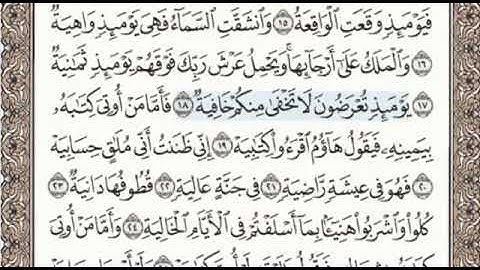 فَيَوْمَئِذٍ وَقَعَتِ الْوَاقِعَةُ ١٥ وَانشَقَّتِ السَّمَاءُ فَهِيَ يَوْمَئِذٍ وَاهِيَةٌ
١٦ وَالْمَلَكُ عَلَىٰ أَرْجَائِهَا ۚ وَيَحْمِلُ عَرْشَ رَبِّكَ فَوْقَهُمْ يَوْمَئِذٍ ثَمَٰنِيَةٌ
١٧ يَوْمَئِذٍ تُعْرَضُونَ لَا تَخْفَىٰ مِنكُمْ خَافِيَةٌ ١٨ فَأَمَّا مَنْ أُوتِيَ كِتَٰبَهُ
بِيَمِينِهِ فَيَقُولُ هَاؤُمُ اقْرَءُوا كِتَٰبِيَهْ ١٩ إِنِّي ظَنَنتُ أَنِّي مُلَٰقٍ حِسَابِيَهْ
٢٠ فَهُوَ فِي عِيشَةٍ رَّاضِيَةٍ ٢١ فِي جَنَّةٍ عَالِيَةٍ ٢٢ قُطُوفُهَا دَانِيَةٌ ٢٣
كُلُوا وَاشْرَبُوا هَنِيئًا بِمَا أَسْلَفْتُمْ فِي الْأَيَّامِ الْخَالِيَةِ ٢٤ وَأَمَّا مَنْ أُوتِيَ